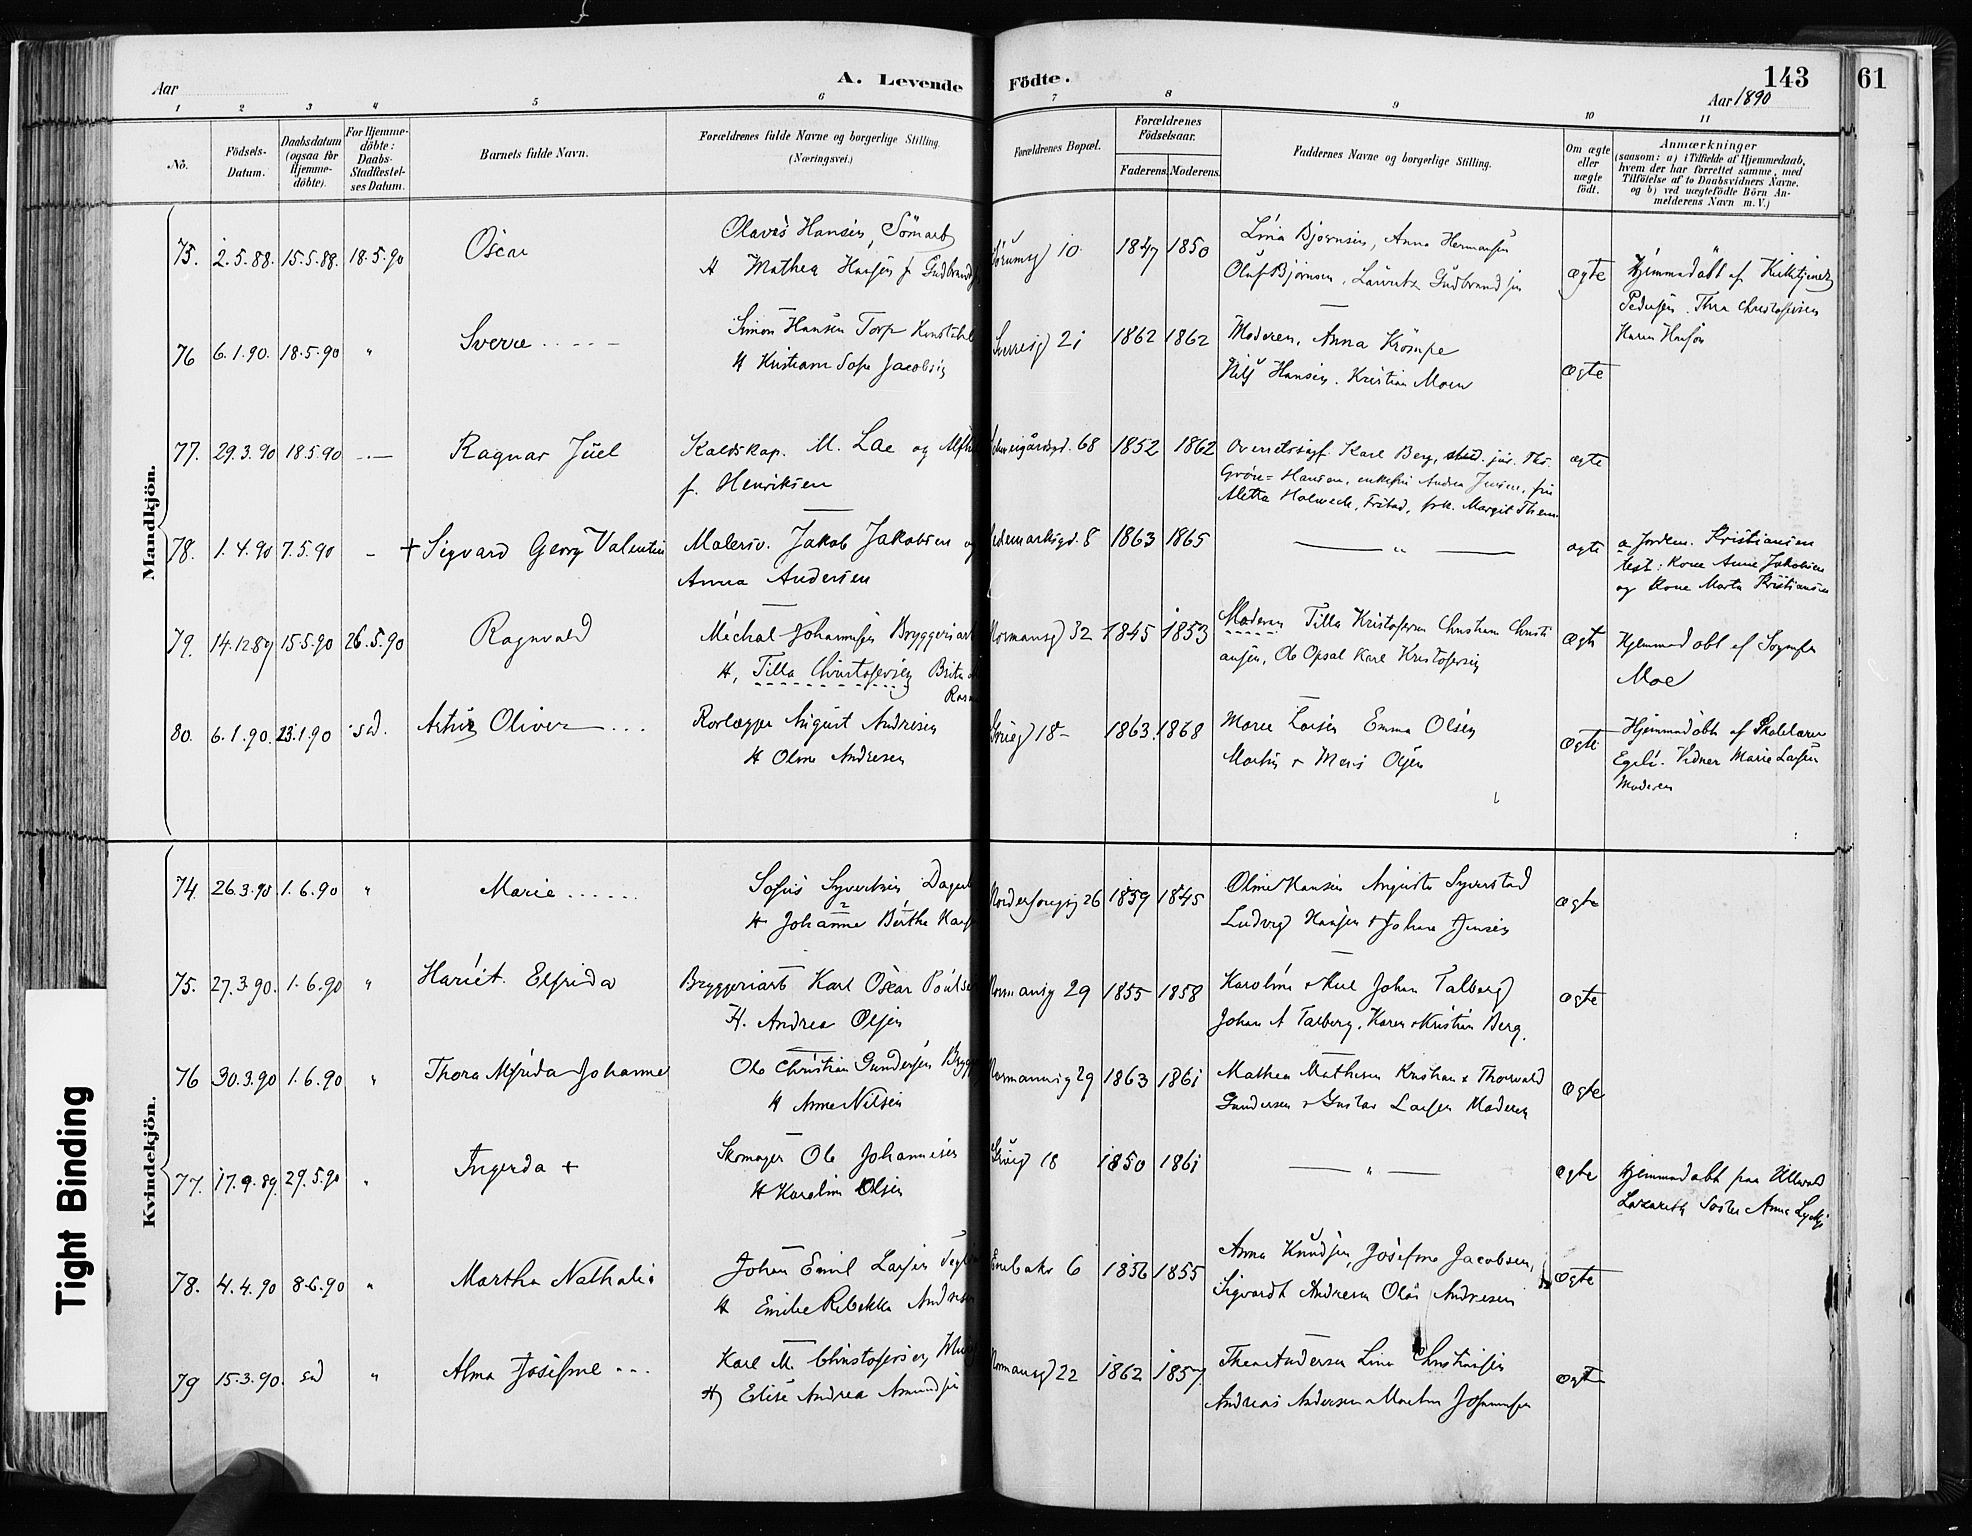 A. Levende Födte.
143
61
Aar
Aar 1890
1 2 3 4 5 6 7 8 9 10 11
No.
Födsels-
Datum.
Daabsdatum
(ogsaa for
Hjemme-
döbte).
For Hjemme-
döbte:
Daabs-
Stadfæstel-
ses Datum.
Barnets fulde Navn.
Forældrenes fulde Navne og borgerlige Stilling.
(Næringsvei.)
Forældrenes Bopæl.
Forældrenes
Födselsaar.
Faderens. Moderens.
Faddernes Navne og borgerlige Stilling.
Om ægte
eller
uægte
födt.
Anmærkninger
(saasom: a) i Tilfælde af Hjemmedaab,
hvem der har forrettet samme, med
Tilföielse af to Daabsvidners Navne.
og b) ved uægtefödte Börn An-
melderens Navn m. V.)
Mandkjön.
75. 2.5.88. 15.5.88. 18.5.90 Oscar
Olaves Hansen, 
H Mathea Hansen f. 
10 1847 1850
Lina Bjørnsen, Anna Hermansen
Oluf Bjørnsen, Lauritz Gudbrandsen
ægte
Hjemmedøbt af
Pedersen. Thea Christofersen
Karen Hansen
76 6.1.90. 18.5.90 " Sverre
Simon Hansen Torp
H Kristiane Sofie Jacobsen
21 1862 1862
Moderen, Anna Krompe
Nils Hansen. Kristian Moen
ægte
77. 29.3.90 18.5.90 -.- Ragnar Juel
M. Lae og
f. Henriksen
68 1852 1862
Karl Berg, stud. jur. Ths.
Grøn-Hansen, enkefru Andrea Jensen, fru
Aletta Holweck, Frstad, frk. Margit
ægte
78. 1.4.90 7.5.90 - + Sigvard Georg Valentin
Malersv. Jakob Jakobsen og
Anna Andersen
8 1863 1865
— " —
ægte
a Jordm. Kristiansen
test: Kone Anne Jakobsen
og Kone Marta Kristiansen
79. 14.12.89 15.5.90 26.5.90 Ragnvald
Michal Johannesen Bryggeriarb
H, Tilla Christofersen
Normansg 32 1845 1853
Moderen Tilla Kristofersen Christian Christi
ansen, Ole Opsal Karl Kristofersen
ægte
Hjemmedøbt af Sognepr
Moe
80. 6.1.90. 23.1.90 sd. Artur Oliver
Rørlægger August Andresen
H Oline Andresen
18 1863. 1868
Maren Larsen Emma Olsen
Martin + Olsen
ægte
Hjemmedøbt af Skolelærer
Egeli. Vidner Marie Larsen
Moderen
Kvindekjön.
74. 26.3.90 1.6.90 " Marie
Sofus Syvertsen
H Johanne Berthe
26 1859 1845
Oline Hansen Auguste Syverstad
Ludvig Hansen + Johan Jensen
ægte
75. 27.3.90. 1.6.90 " Hariet Elfrida
Bryggeriarb Karl Oscar
H. Andrea Olsen
Normansg 29 1855 1858
Karoline + Johan Talberg
Johan A Talberg. Karen + Kristian Berg.
ægte
76 30.3.90 1.6.90 " Thora Alfrida Johanne
Ole Christian Gundersen
H Anne Nilsen
29 1863 1861
Mathea Mathisen Kristian + Thorvald
Gundersen + Gustav Larsen Moderen
ægte
77. 17.9.89. 29.5.90 " Ingerda +
Skomager Ole Johannesen
H Karoline Olsen
18 1850 1861
— " —
ægte
Hjemmedøbt paa Ullevold
Lazareth Søster Anna
78. 4.4.90 8.6.90 " Martha Nathalie
Johan Emil Larsen
H Emilie Rebekka
Enebakv 6 1856 1855
Anna Knudsen, Josefine Jacobsen,
Sigvardt Andresen Olai Andresen
ægte
79 15.3.90. sd " Alma Josefine
Karl M. Christofersen
H) Elise Andrea Amundsen
Normansg 22 1862 1857.
Thea Andersen Lina Christiansen
Andreas Andersen Martin Johannesen
ægte
Tight Binding